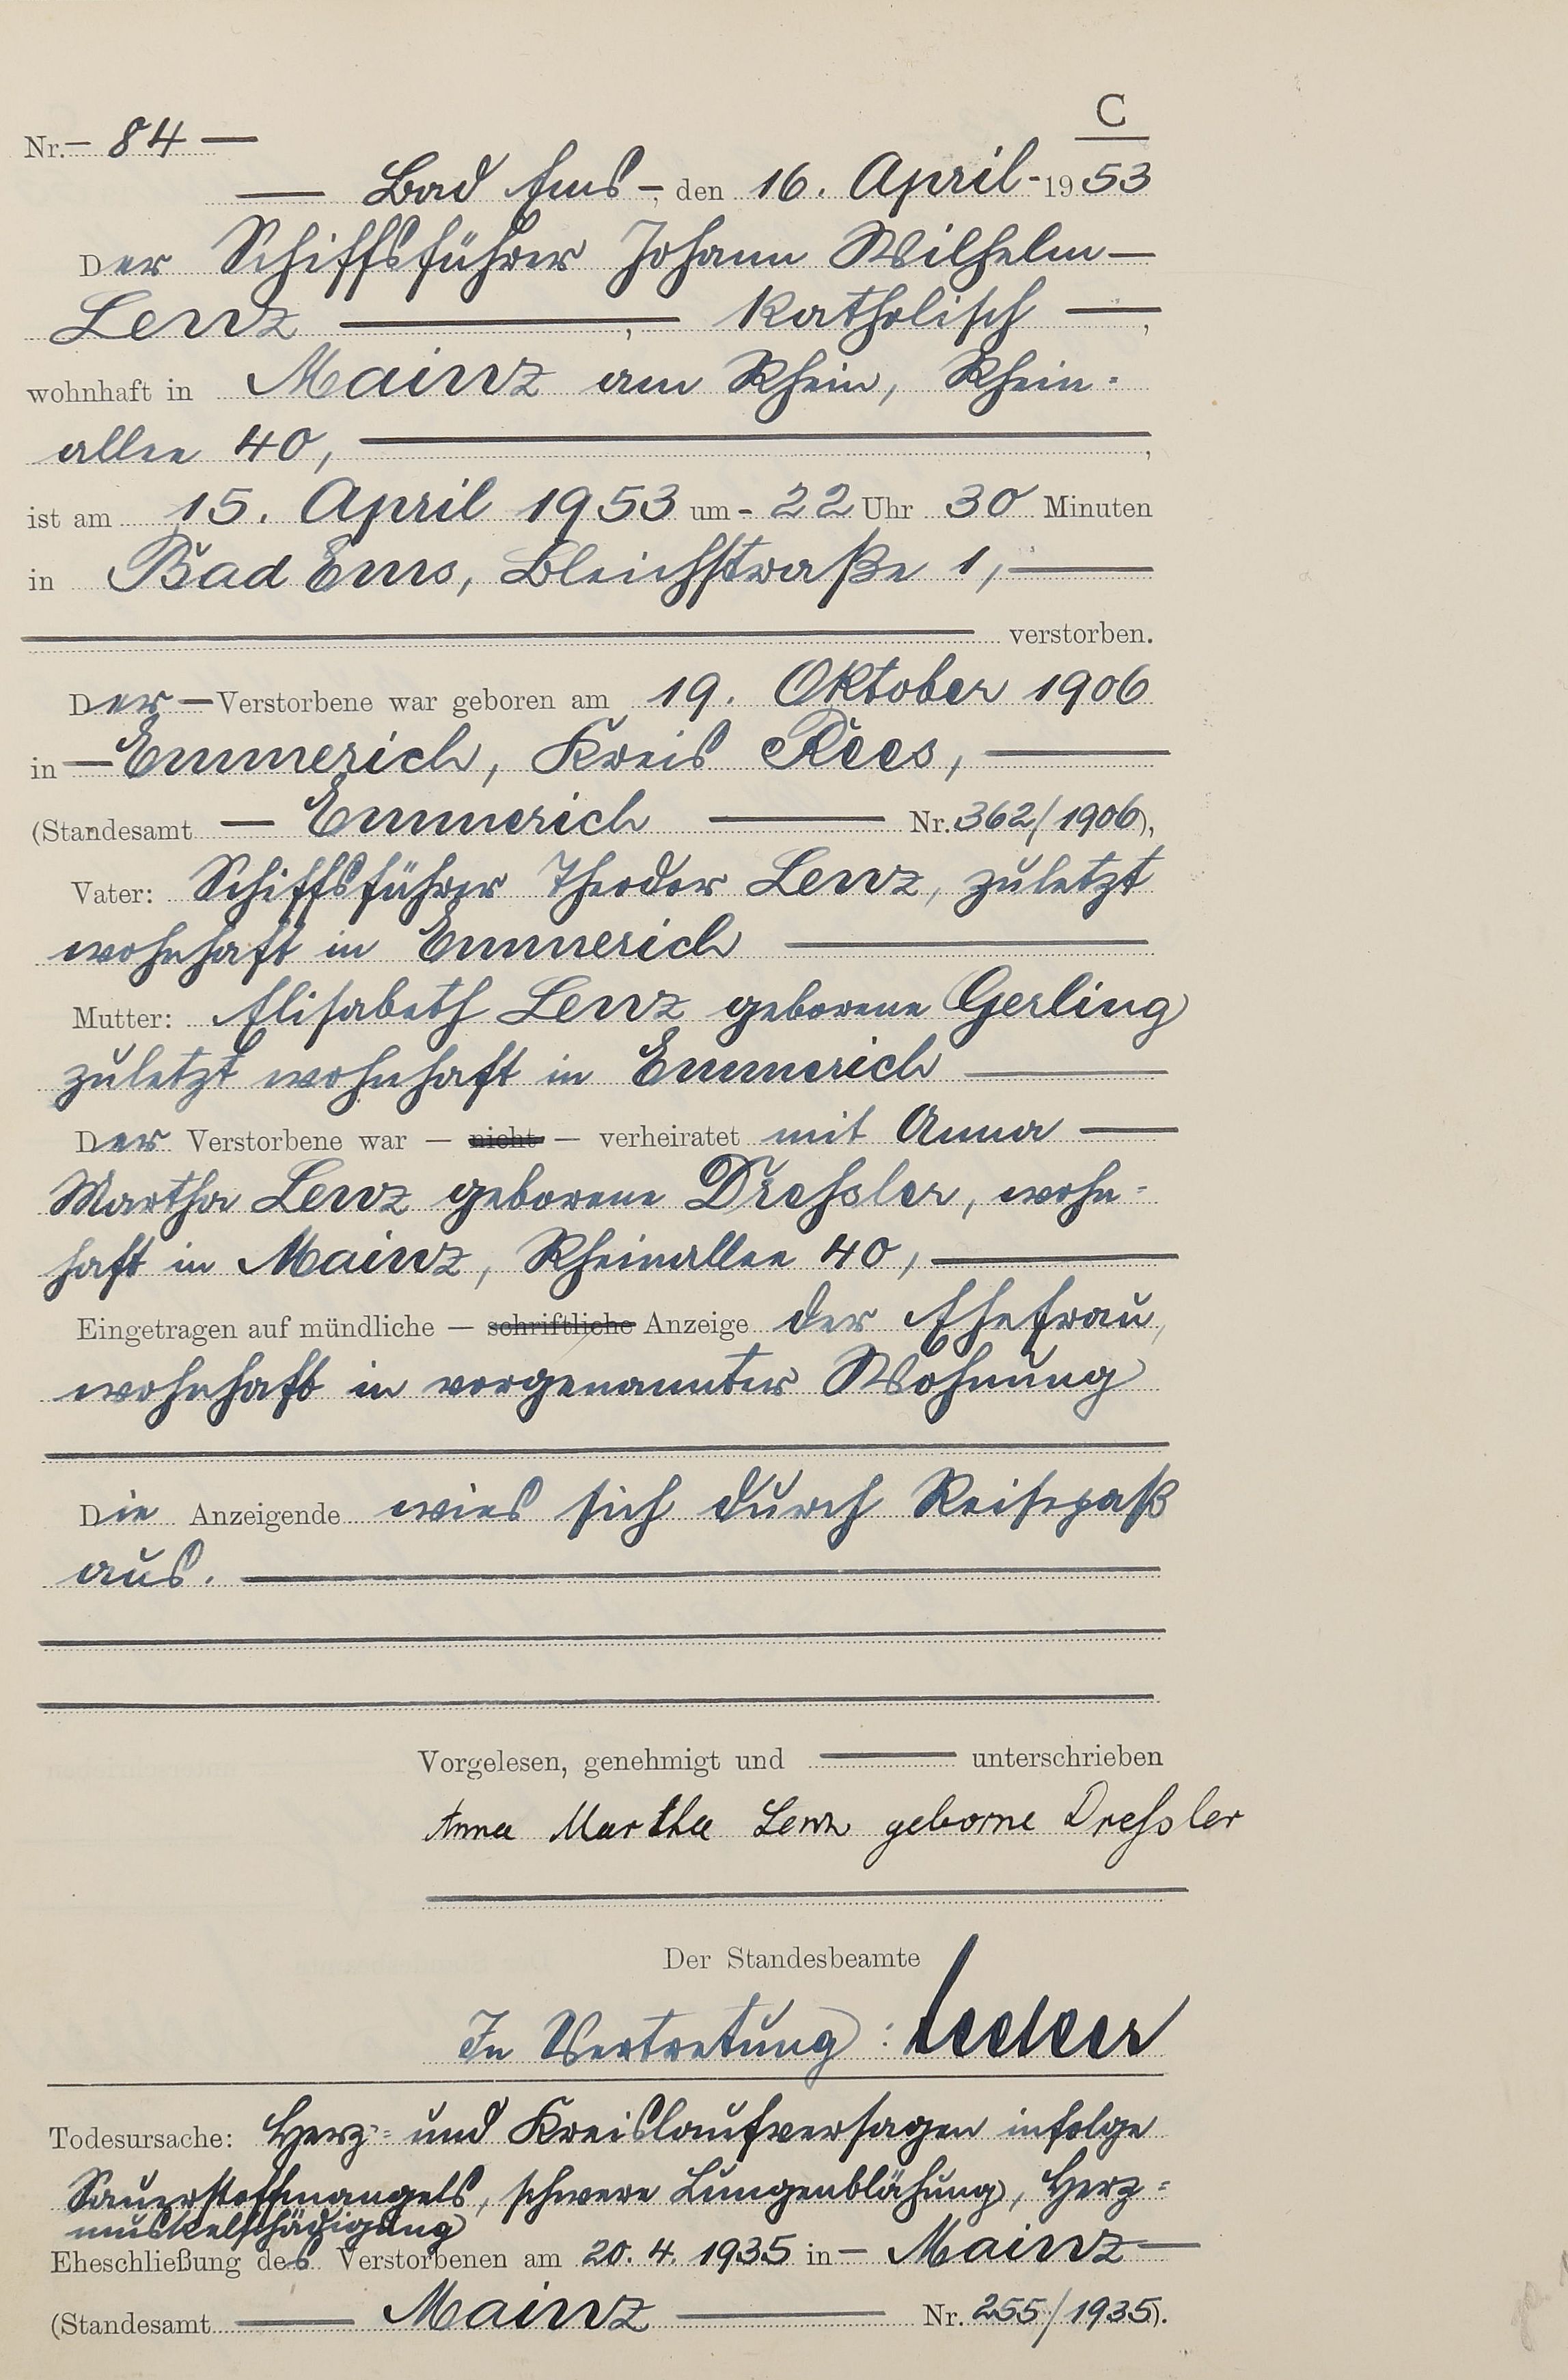 C
Nr. — 84 —
— Bad Ems —, den 16. April - 1953
Der Schiffsführer Johann Wilhelm —
Lenz —, — katholisch —,
wohnhaft in Mainz am Rhein, Rhein-
allee 40, —,
ist am 15. April 1953 um - 22 Uhr 30 Minuten
in Bad Ems, Bleichstraße 1, —
— verstorben.
Der — Verstorbene war geboren am 19. Oktober 1906
in — Emmerich, Kreis Rees, —
(Standesamt — Emmerich — Nr. 362/1906),
Vater: Schiffsführer Theodor Lenz, zuletzt
wohnhaft in Emmerich —
Mutter: Elisabeth Lenz geborene Gerling
zuletzt wohnhaft in Emmerich —
Der Verstorbene war — nicht — verheiratet mit Anna —
Martha Lenz geborene Dressler, wohn-
haft in Mainz, Rheinallee 40, —
Eingetragen auf mündliche — schriftliche Anzeige der Ehefrau,
wohnhaft in vorgenannter Wohnung
Die Anzeigende wies sich durch Reisepaß
aus. —
Vorgelesen, genehmigt und — unterschrieben
Anna Martha Lenz geborne Dressler
Der Standesbeamte
In Vertretung:
Todesursache: Herz- und Kreislaufversagen infolge
Sauerstoffmangels, schwere Lungenblähung, Herz-
muskelschädigung
Eheschließung des Verstorbenen am 20. 4. 1935 in — Mainz —
(Standesamt — Mainz — Nr. 255/1935).